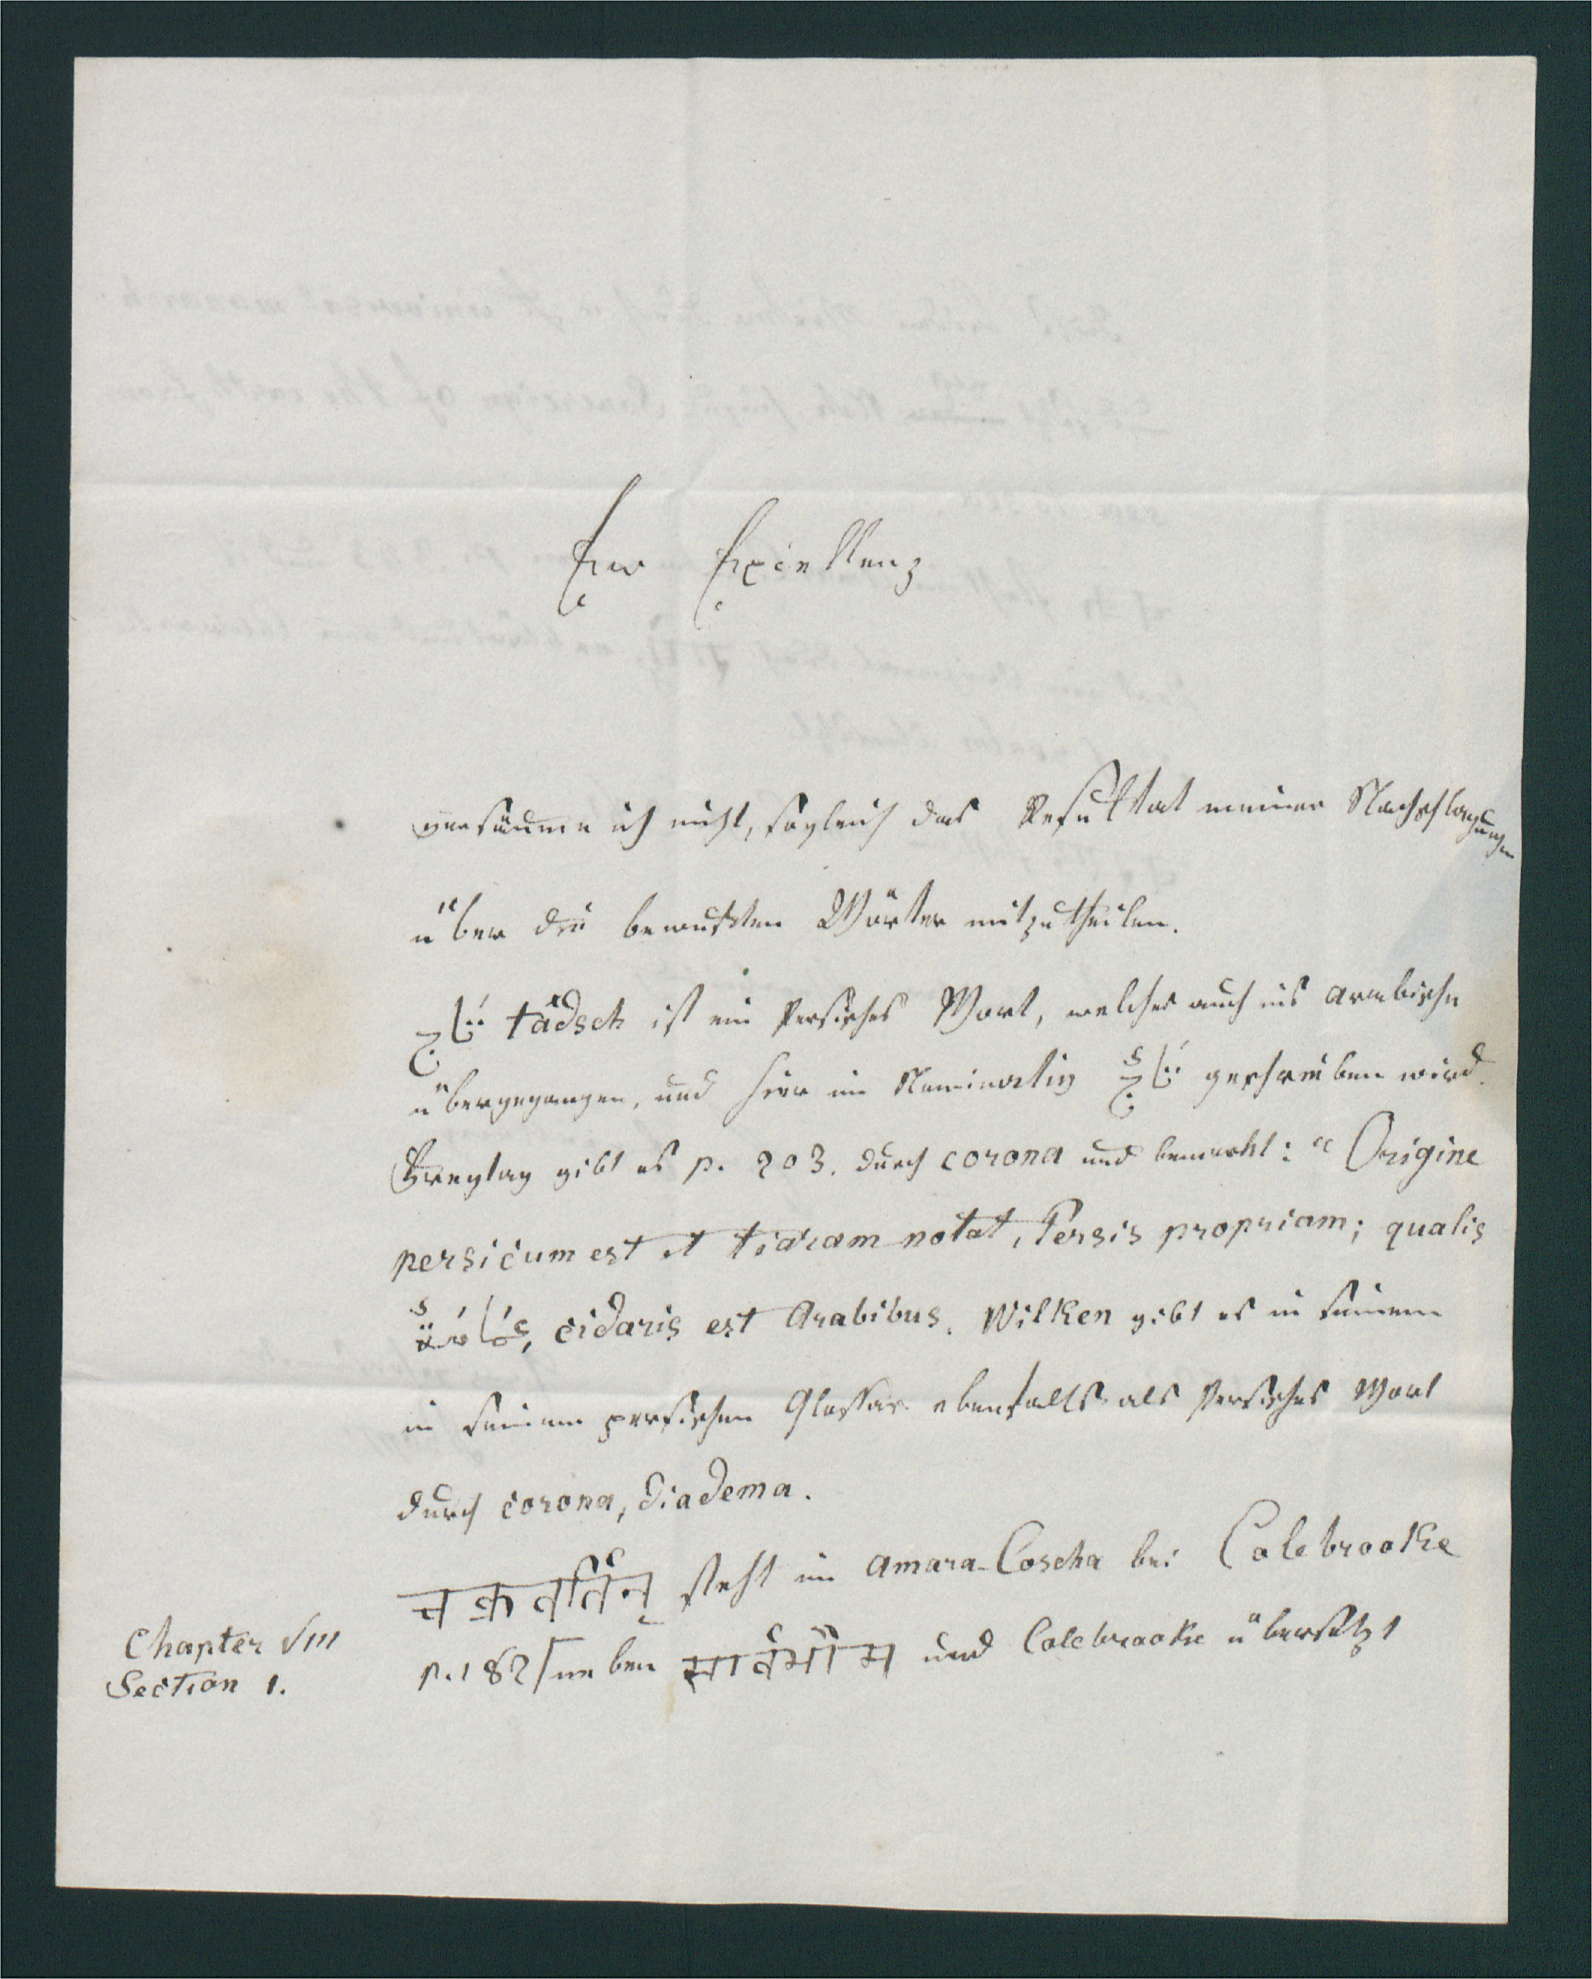 Ew Excellenz
versäume ich nicht, sogleich das Resultat meiner Nachschlagungen
über die bewußten Wörter mitzutheilen.
تاج tâdsch ist ein Persisches Wort, welches auch ins arabische
übergegangen, und hier im Nominativ تاجٌ geschrieben wird.
Freytag gibt es p. 203. durch corona und bemerkt: “Origine
persicum est et tiaram notat, Persis propriam; qualis
عمامةٌ, cidaris est Arabibus. Wilken gibt es in seinem
in seinem persischen Glossar ebenfalls als Persisches Wort
durch corona, diadema.
चक्रवर्तिन् steht im Amara-Coscha bei Colebrooke
Chapter VIII
Section 1.
p. 182 neben सार्वभौम und Colebrooke übersetzt